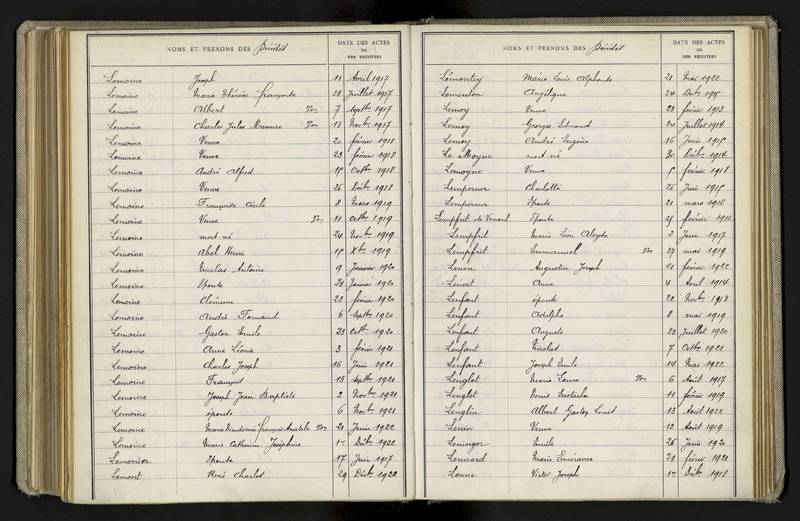 NOMS ET PRENOMS DES Décédés
DATE DES ACTES
OU
DES REGISTRES
Lemoine Joseph 11 Avril 1917
Lemoine Marie Thérèse Françoise 28 Juillet 1917
Lemoine Albert 7 Septbre 1917
Lemoine Charles Jules Maurice 13 Novbre 1917
Lemoine Veuve 20 février 1918
Lemoine Veuve 23 février 1918
Lemoine André Alfred 15 Octbre 1918
Lemoine Veuve 26 Décbre 1918
Lemoine Françoise Cécile 8 Mars 1919
Lemoine Veuve 11 Octbre 1919
Lemoine mort né 24 Novbre 1919
Lemoine Abel Henri 15 Xbre 1919
Lemoine Nicolas Antoine 9 Janvier 1920
Lemoine Epouse 28 Janvier 1920
Lemoine Clémence 23 février 1920
Lemoine André Fernand 6 Septbre 1920
Lemoine Gaston Emile 23 Octbre 1920
Lemoine Anne Léonie 3 février 1921
Lemoine Charles Joseph 16 Juin 1921
Lemoine François 13 Septbre 1921
Lemoine Joseph Jean Baptiste 2 Novbre 1921
Lemoine épouse 6 Novbre 1921
Lemoine Marie Dieudonné François Anatole 21 Juin 1922
Lemoine Marie Catherine Joséphine 1er Décbre 1922
Lemonier Epouse 17 Juin 1917
Lemont René Charles 29 Décbre 1922
NOMS ET PRENOMS DES Décédés
DATE DES ACTES
OU
DES REGISTRES
Lémontey Marie Louis Alphonse 21 Mai 1922
Lemouton Angélique 24
Lemoy Veuve 28 février 1913
Lemoy Georges Edmond 24 Juillet 1914
Lemoy André Eugène 16 Juin 1915
Le Moyne mort né Décbre 1914
Lemoyne Veuve 5 février 1918
Lempereur Charlotte 26 Juin 1915
Lempereur Epouse 21 mars 1916
Lempfrit Epouse 25 février 1916
Lempfrit Marie Léon Aloyse 2 Juin 1917
Lempfrit Emmanuel 27 mai 1919
Lenen Augustin Joseph 21 février 1922
Lénert Anne 4 Avril 1914
Lenfant épouse 22 Novbre 1913
Lenfant Adolphe 8 mai 1919
Lenfant Auguste 23 Juillet 1920
Lenfant Nicolas 7 Octbre 1921
Lenfant Joseph Emile 14 Mai 1922
Lenglet Marie Laure 6 Août 1917
Lenglet Denis Eustache 11 février 1919
Lenglin Albert Gaston Louis 13 Avril 1922
Lenin Veuve 12 Août 1919
Leninger Emile 26 Juin 1920
Lennard Marie Emérance 28 février 1921
Lenne Victor Joseph 1er Décbre 1918